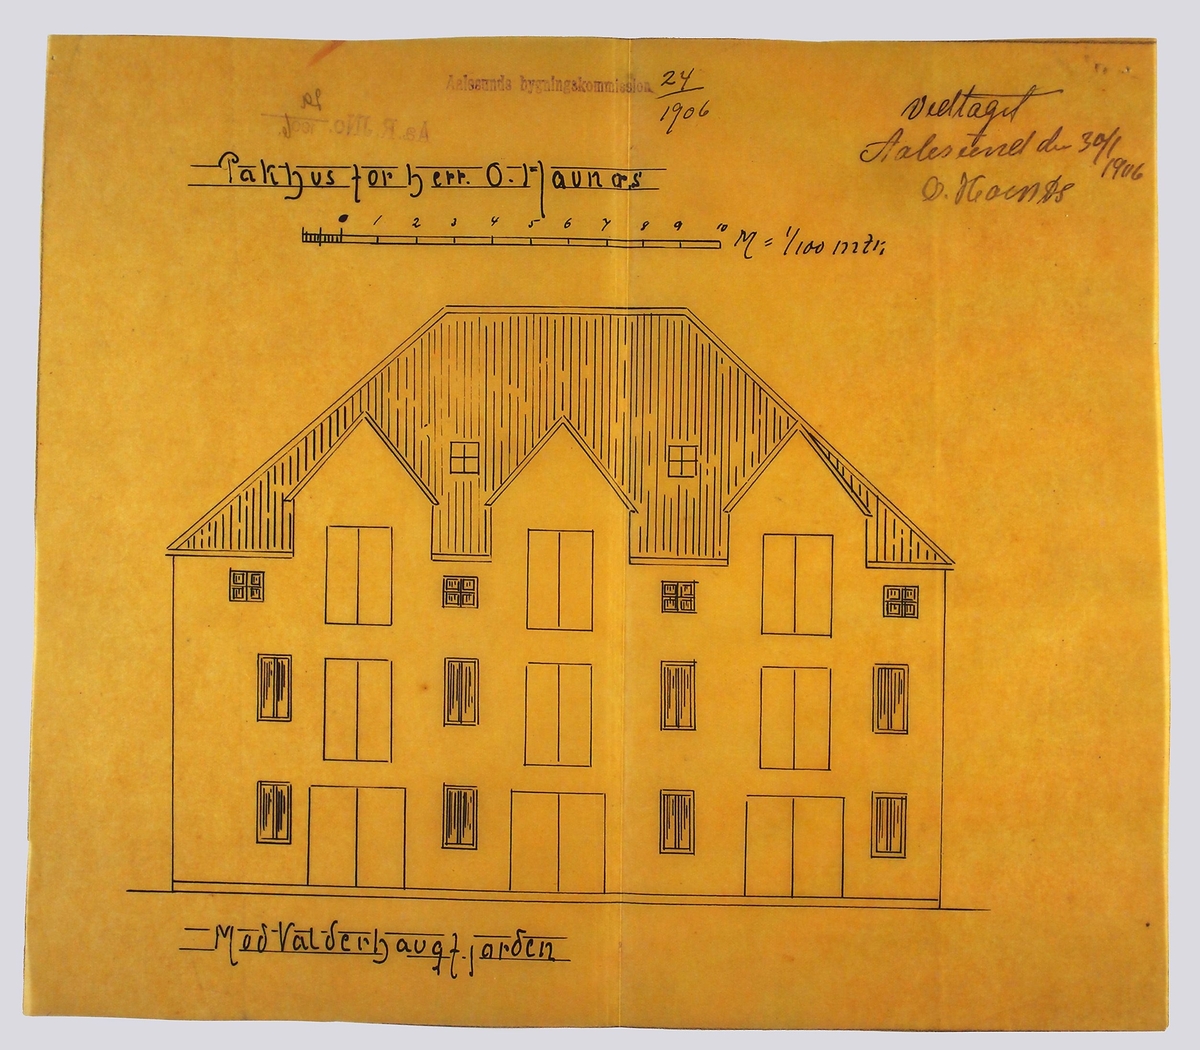 Aalesunds bygningskommission 24
1906
Vedtaget
Aalesund den 30/1
1906
Pakhus for herr. O. Haunæs
0 1 2 3 4 5 6 7 8 9 10 M = 1/100 mtr.
Mod Valderhaugfjorden